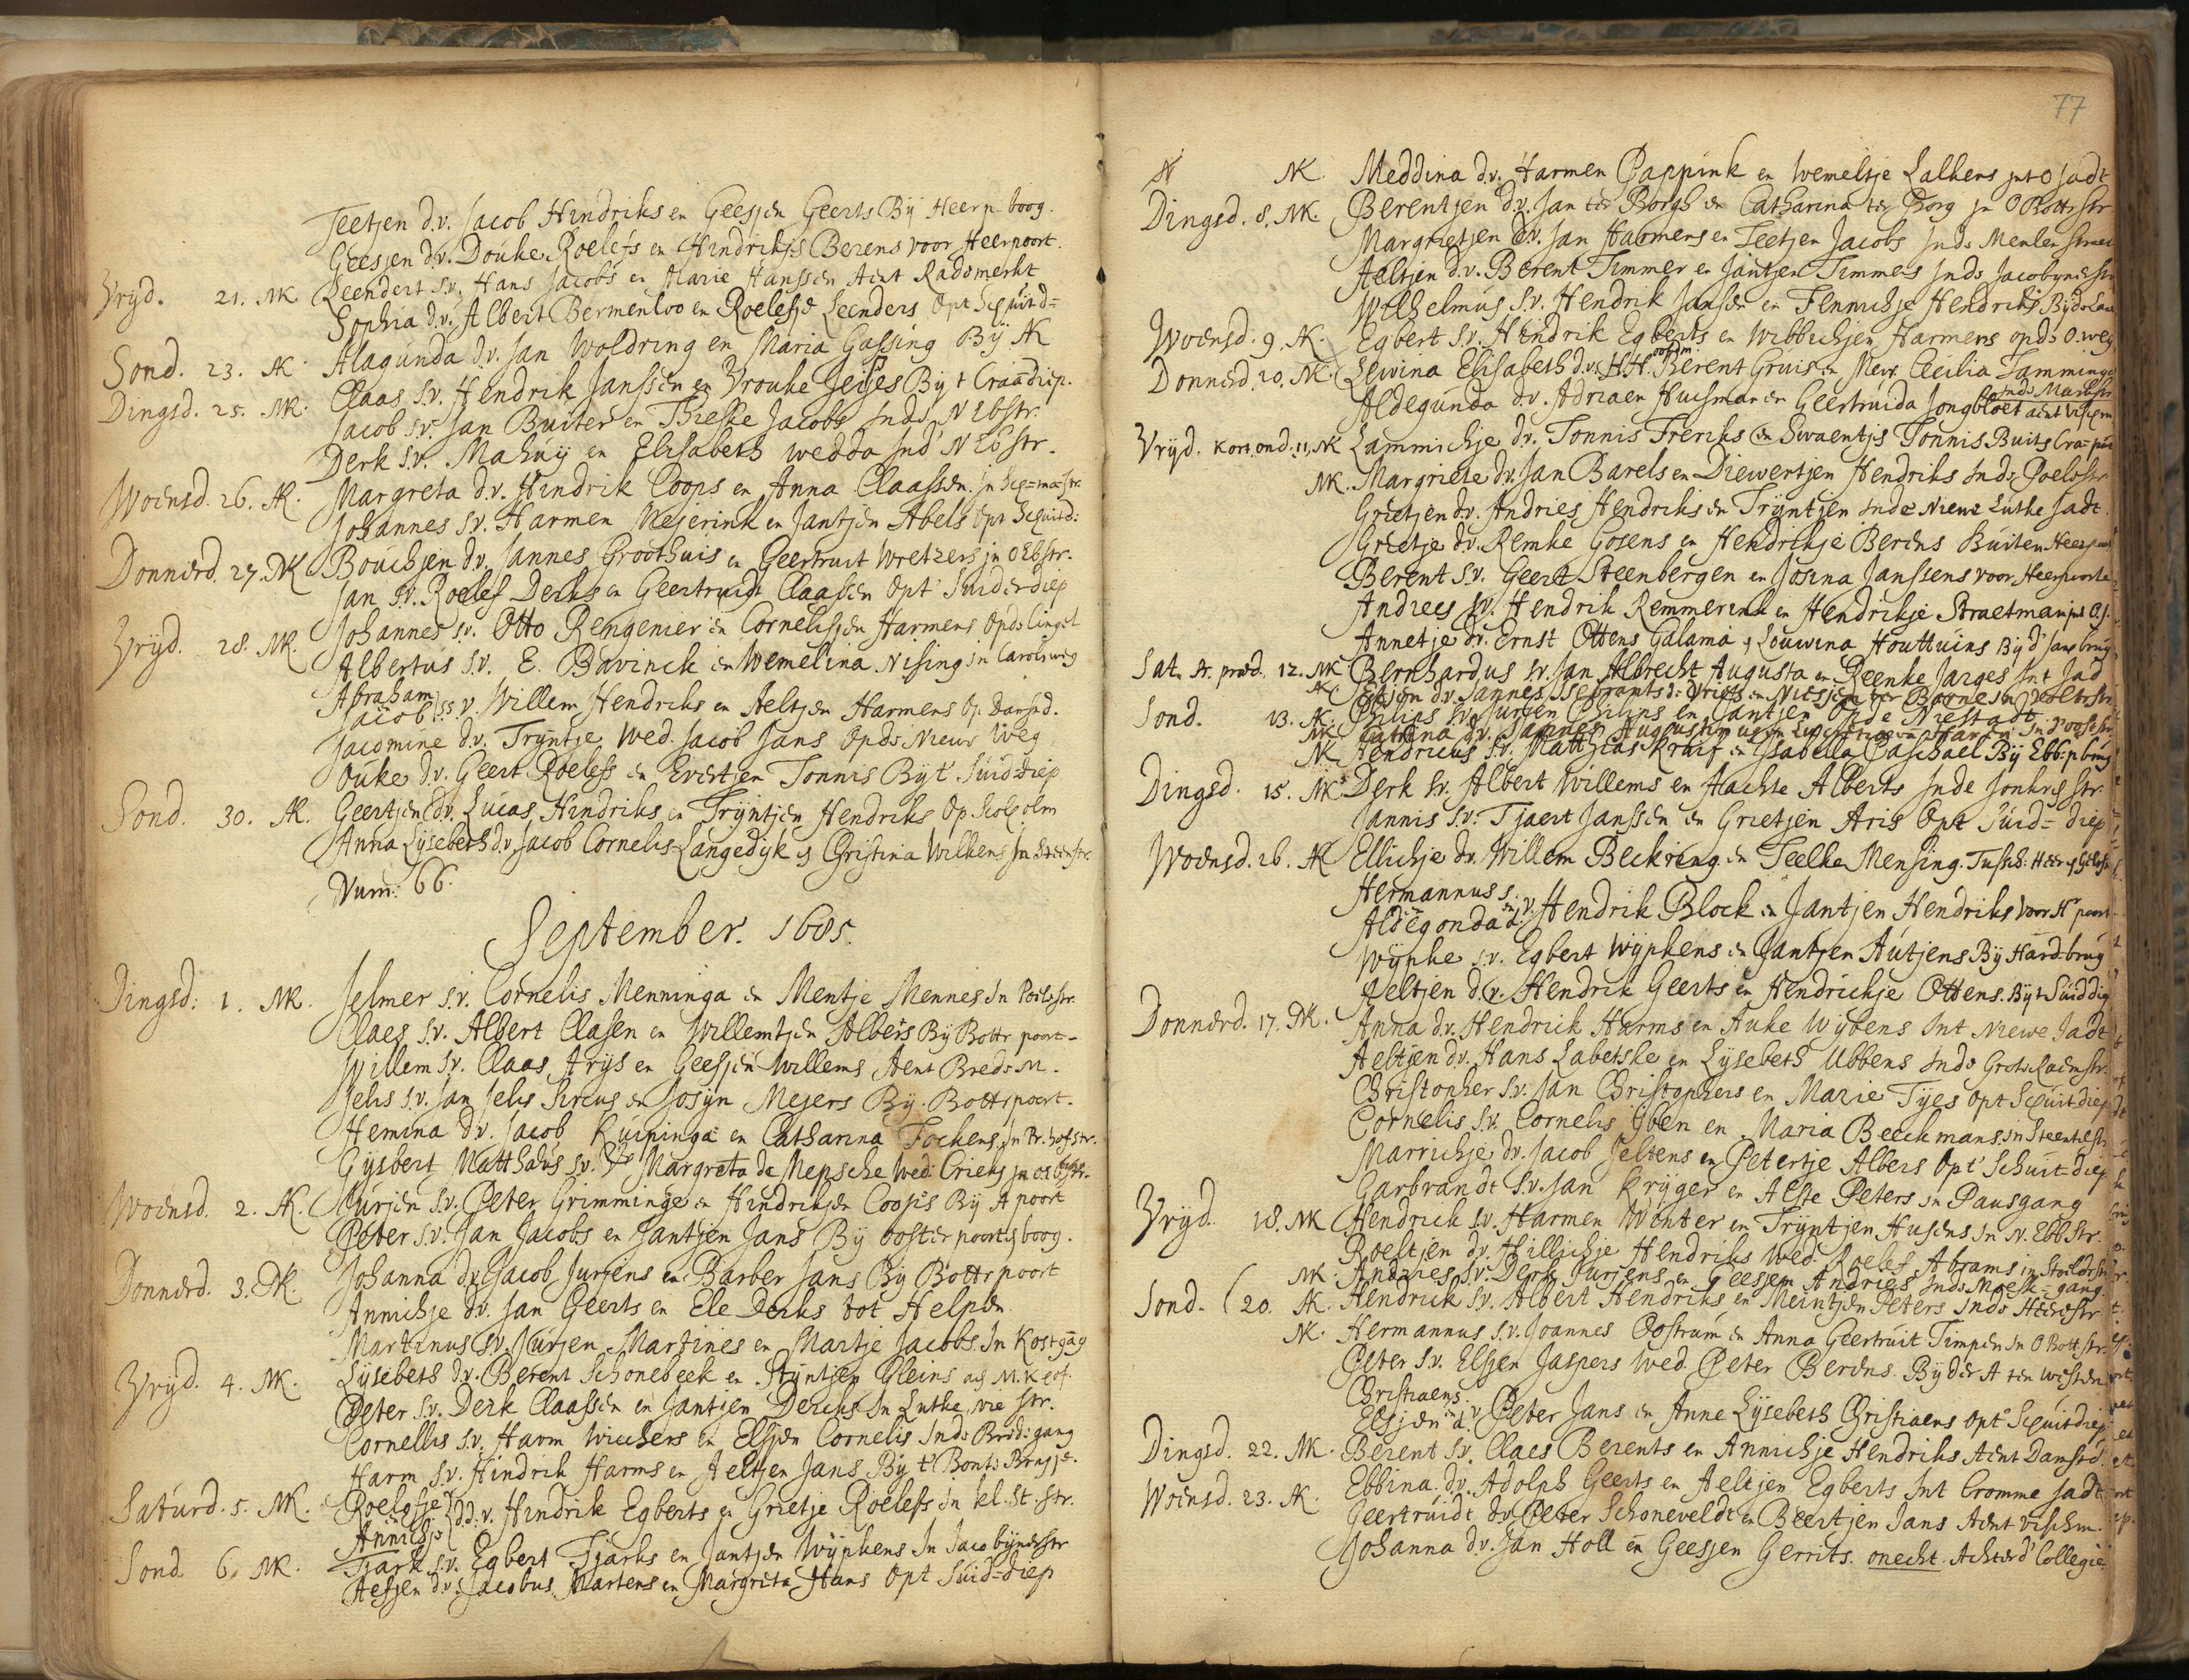 Teetjen d.v. Jacob Hindriks en Geesjen Geerts Bÿ Heerp. boog.
Geesjen d.v. Douke Roelefs en Hindrikjs Berens voor Heerpoort.
Vrÿd. 21. NK Leendert s.v. Hans Jacobs en Marie Hanssen Aent Radsmerkt
Sophia d.v. Albert Bermenloo en Roelefje Leenders Opt Schuitd=
Sond. 23. AK Alagunda d.v. Jan Woldring en Maria Gassing Bÿ AK
Dingsd. 25. NK. Claas s.v. Hendrik Janssen en Vrouke Jeises Bÿ t Craandiep.
Jacob s.v. Jan Buiter en Trieske Jacobs Inde N Ebstr.
Derk s.v. Mahuÿ en Elisabeth wedda Ind N Ebstr.
Woensd. 26. AK. Margreta d.v. Hindrik Coops en Anna Claassen. In
Johannes s.v. Harmen Mejerink en Jantjen Abels Opt Schuitd:
Donnerd. 27. NK Bouchjen d.v. Jannes Groothuis en Geertruit Wretzers in O Ebstr.
Jan s.v. Roelef Derks en Geertruidt Claassen Opt Suiderdiep
Vrÿd. 28. NK. Johannes s.v. Otto Rengenier en Cornelisjen Harmens Opde Cingel
Albertus s.v. E. Bavinck en Wemelina Nising in Caroliweg
Abraham
Jacob ss.v. Willem Hendriks en Aeltjen Harmens Op Damsd.
Jacomine d.v. Trÿntje Wed. Jacob Jans Opde Nieuwe Weg
Ouke d.v. Geert Roelefs en Evertjen Tonnis Bÿt Suid=diep
Sond. 30. AK. Geertjen d.v. Lucas Hindriks en Trÿntjen Hendriks Op Scholholm
Anna Lÿsebeth d.v. Jacob Cornelis Langedÿk en Christina Wilkens In Steenstr.
Num: 66.
September. 1685.
Dingsd: 1. NK. Jelmer s.v. Cornelis Menninga en Mentje Mennes In Poelestr.
Claes s.v. Albert Clasen en Willemtjen Albers Bÿ Bottr poort.
Willem s.v. Claas Arÿs en Geesjen Willems Aent Brede M.
Jelis s.v. Jan Jelis Sircus en Josÿn Mejers Bÿ. Bottrpoort.
Hemina d.v. Jacob Kuipinga en Catharina Fockens, In Pr. hofstr.
Gÿsbert Matthaeus s.v. Margreta de Mepsche Wed: Crieks in
Woensd. 2. AK. Jurjen s.v. Peter Grimminge en Hindrikjen Coops Bÿ A poort
Peter s.v. Jan Jacobs en Jantjen Jans Bÿ ooster poorts boog.
Donnerd. 3. NK. Johanna d.v. Jacob Jurjens en Barber Jans Bÿ Bottrpoort
Annichje d.v. Jan Geerts en Ele Derks tot Helpen
Martinus s.v. Jurjen Martines en Martje Jacobs In Kostgang
Vrÿd. 4. NK. Lÿsebeth d.v. Berent Schonebeek en Trÿntjen Gleins
Peter s.v. Derk Claassen en Jantjen Dercks In Lutke str.
Cornellis s.v. Harm Wichers en Elsjen Cornelis Inde Brede gang
Harm s.v. Hindrik Harms en Aeltjen Jans Bÿ t Bonte Brugje.
Saturd. 5. NK. Roelefje
Annichje dd.v. Hindrik Egberts en Grietje Roelefs In kl. St. str.
Sond 6. NK. Tjark s.v. Egbert Tjarks en Jantjen Wÿpkens In Jacobÿnerstr
Aefjen d.v. Jacobus Martens en Margreta Hans Opt Suid=diep
77
NK. Meddina d.v. Harmen Pappink en Wemeltje Lalkens int O Jadt
Dingsd. 8. NK. Berentjen d.v. Jan ter Borgh en Catharina ter Borg in O Bottrstr
Margrietjen d.v. Jan Harmens en Teetjen Jacobs Inde Menlen
Aeltjen d.v. Berent Timmer en Jantjen Timmers Inde Jacobynerstr
Wilhelmus s.v. Hendrik Jansen en Fennichje Hendriks Bÿde
Woensd. 9. AK. Egbert s.v. Hendrik Egberts en Wibbichjen Harmens opde O. weg
Donnerd. 10. NK. Lewina Elisabeth d.v. H.H. Berent Gruis en Mevr. Cecilia Tamminga
inde Martstr
Aldegunda d.v. Adriaen Huisman en Geertruida Jongbloet aent Vischm
Vrÿd. Kort. ond. 11. NK Lammichje d.v. Tonnis Freriks en Swaentjes Tonnis. Buits Cra=poo
NK. Margriete d.v. Jan Barels en Diewertjen Hendriks Inde Poelestr
Grietjen d.v. Andries Hendriks en Trÿntjen Inde Niewe Lutke Jadt.
Grietje d.v. Remke Gosens en Hendrikje Berens Buiten Heerpoort
Berent s.v. Geert Steenbergen en Josina Janssens voor Heerpoorte
Andrees s.v. Hendrik Remmerink en Hendrikje Straetman int O.J.
Annetje d.v. Ernst Ottens Galama en Louwina Houttuins Bÿ d' Jans brug
Sat. 12. NK Bernhardus s.v. Jan Albrecht Augusta en Reenke Jarges Int Jad
AK d.v. Jannes Isebrants de Vries en Nitsjen ter Borne in
Sond. 13. AK. Philips s.v. Jurjen Philips en Jantjen Opde Niestadt
NK Catrina d.v. Jannes Augustinus en
NK Hendricus s.v. Matthias Kruif en Isabella Paschael Bÿ Ebb. p brug
Dingsd. 15. NK Derk s.v. Albert Willems en Hachte Alberts Inde Jonkers str.
Jannis s.v. Tjaert Janssen en Grietjen Aris Opt Suid=diep
Woensd. 16. AK Ellichje d.v. Willem Beckring en Teelke Mensing. Tussch: Heer
Hermannus s.
Aldegonda en d.v. Hendrik Block en Jantjen Hendriks Voor Hr poort
Wÿpke s.v. Egbert Wÿpkens en Jantjen Autjens Bÿ Hard=brug
Aeltjen d.v. Hendrik Geerts en Hendrickje Ottens. Bÿt Suiddiep
Donnerd. 17. NK. Anna d.v. Hendrick Harms en Auke Wÿbens Int Niewe Jadt
Aeltjen d.v. Hans Labetske en Lÿsebeth Ubbens Inde Grote Raemstr.
Christopher s.v. Jan Christophers en Marie Tÿes Opt Schuitdiep
Cornelis s.v. Cornelis Iben en Maria Beeckmans. in Steentilstr
Marrichje d.v. Jacob Jeltens en Petertje Albers Opt Schuit=diep
Garbrandt s.v. Jan Krÿger en Alste Peters in Pausgang
Vrÿd. 18. NK Hendrick s.v. Harmen Winter en Trÿntjen Husens In N. Ebbstr.
Roeltjen d.v. Hillichje Hendriks Wed. Roelef Abrams in
NK. Andries s.v. Derk Jurjens en Geesjen Andries Inde Moesk=gang.
Sond. 20. AK. Hendrick s.v. Albert Hendriks en Meintjen Peters Inde Heerestr
NK. Hermannus s.v. Joannes Oostrum en Anna Geertruit Timpen In O Bott str.
Peter s.v. Elsjen Jaspers Wed. Peter Berens. Bÿ der A ten westen
Christiaen s.
Elsjen en d.v. Peter Jans en Anne Lÿsebeth Christiaens Opt Schuitdiep
Dingsd. 22. NK. Berent s.v. Claes Berents en Annichje Hendriks Aent Damsted.
Woensd. 23. AK. Ebbina d.v. Adolph Geerts en Aeltjen Egberts Int Cromme Jadt
Geertruidt d.v. Peter Schoneveldt en Beertjen Jans Aent vischm.
Johanna d.v. Jan Holl en Geesjen Gerrits. onecht. Achter d' Collegie